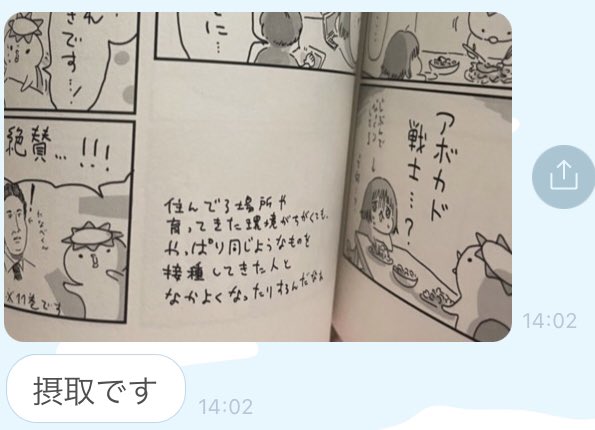 アボカド
戦士…?
に…
きです…!
絶賛…!!!
×11巻です
住んでる場所や
育ってきた環境がちがくても、
やっぱり同じようなものを
接種してきた人と
なかよくなったりするんだなぁ
14:02
摂取です
14:02